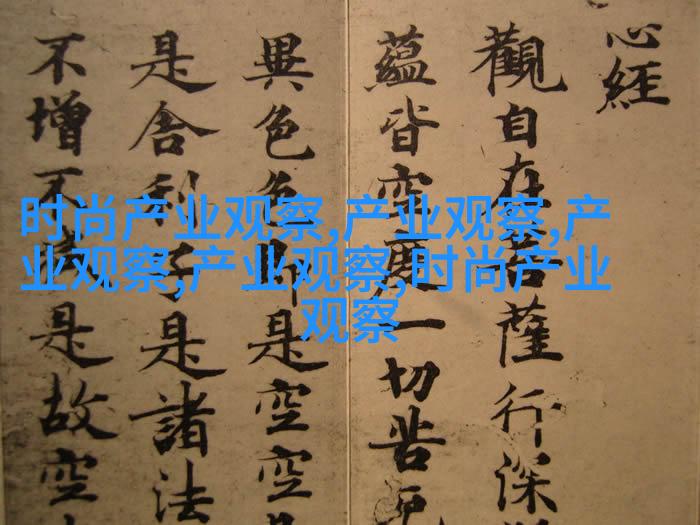 心經
觀自在菩薩行深
蘊皆空度一切苦厄
異色色即是空空
是舍利子是諸法
不增不是故空
时尚产业观察,产业观察,产
业观察,产业观察,时尚产业
观察